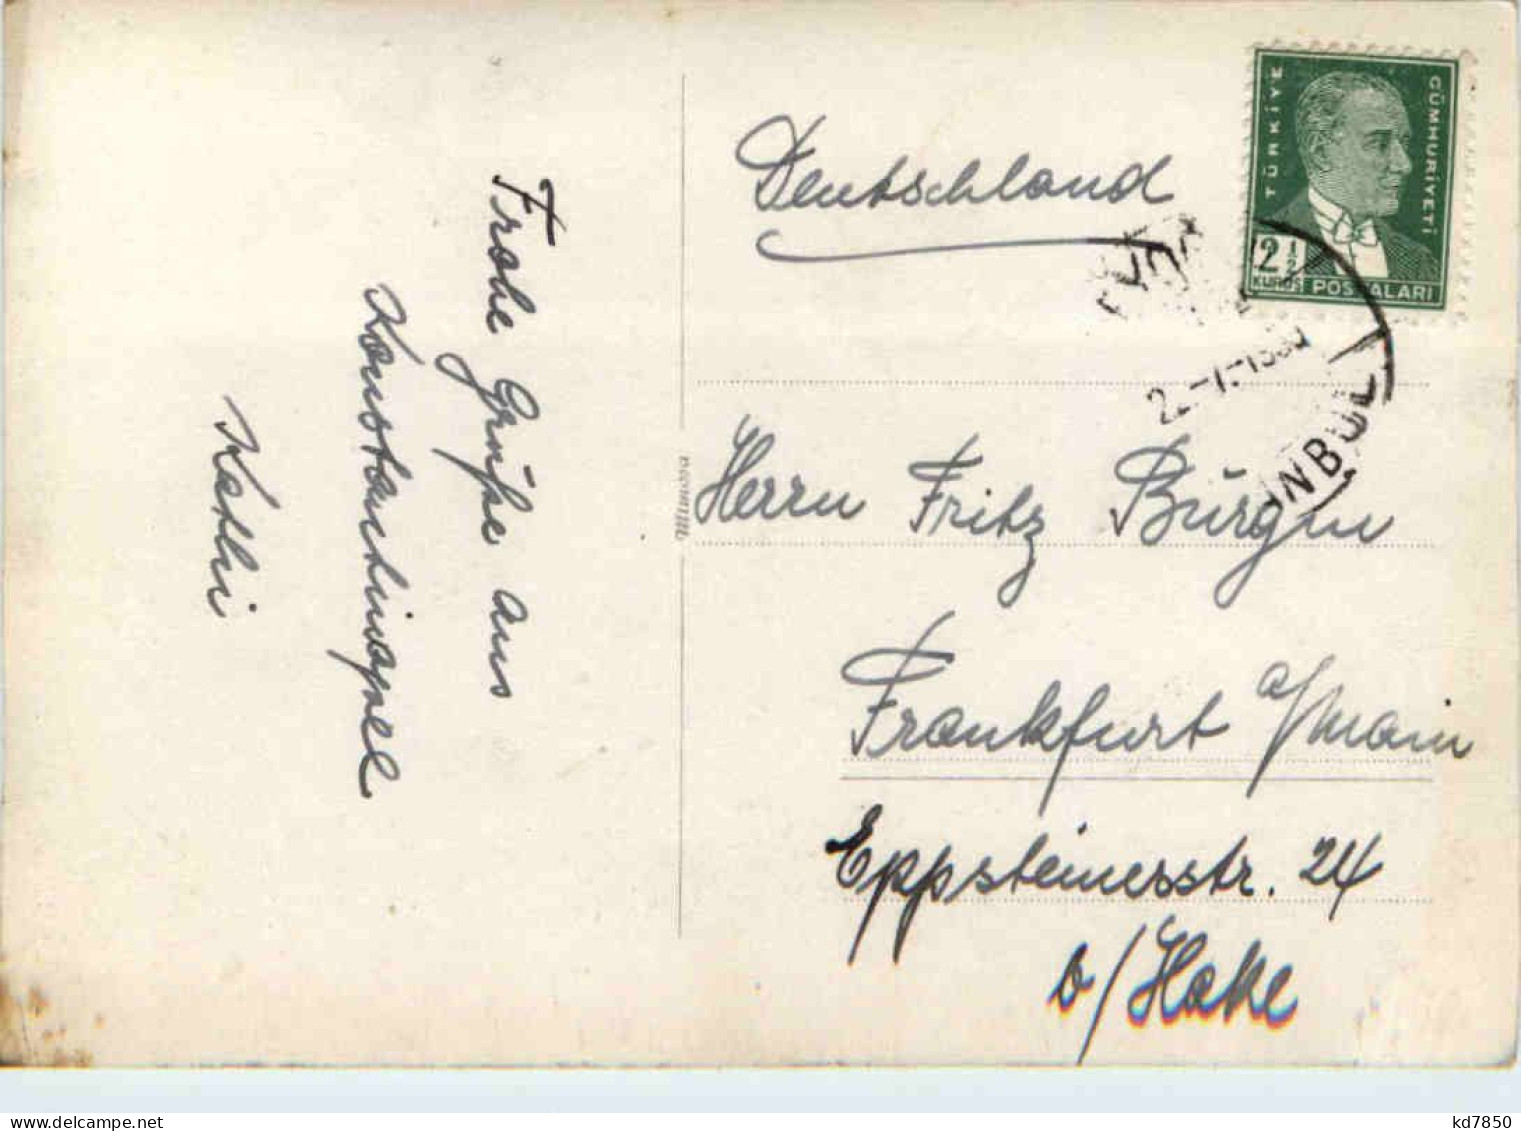 Frohe Grüße aus
Konstantinopel
Kathi
Deutschland
TÜRKİYE
CÜMHURİYETİ
2 1/2
KURUŞ
POSTALARI
NBUL
Herrn Fritz
Frankfurt a/Main
Eppsteinerstr. 24
b/Hake
delcampe.net
kd7850